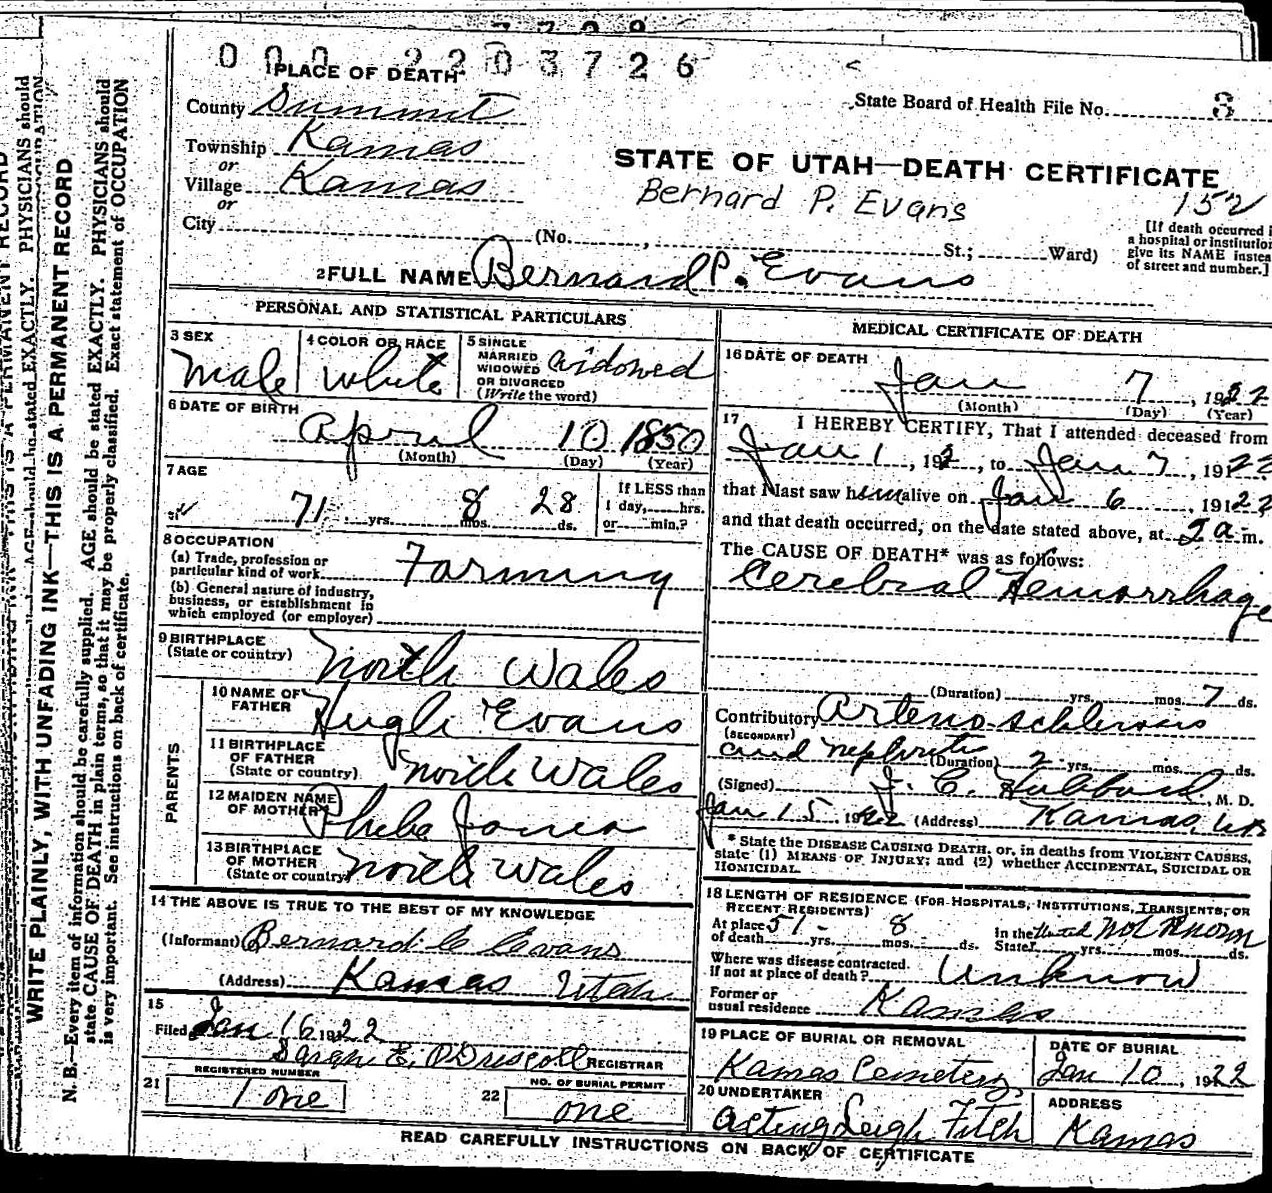 000 2203726
1 PLACE OF DEATH
County Summit
State Board of Health File No. 3
Township Kamas
or
Village Kamas
or
City
STATE OF UTAH—DEATH CERTIFICATE
Bernard P. Evans
152
(No. , St.; Ward)
[If death occurred i
a hospital or institution
give its NAME instea
of street and number.]
2 FULL NAME Bernard P. Evans
PERSONAL AND STATISTICAL PARTICULARS
3 SEX
Male
4 COLOR OR RACE
White
5 SINGLE
MARRIED
WIDOWED
OR DIVORCED
(Write the word)
Widowed
6 DATE OF BIRTH
April 10 1850
(Month) (Day) (Year)
7 AGE
71 yrs. 8 mos. 28 ds.
If LESS than
1 day, hrs.
or min.?
8 OCCUPATION
(a) Trade, profession or
particular kind of work
Farming
(b) General nature of industry,
business, or establishment in
which employed (or employer)
9 BIRTHPLACE
(State or country)
North Wales
PARENTS
10 NAME OF
FATHER
Hugh Evans
11 BIRTHPLACE
OF FATHER
(State or country)
North Wales
12 MAIDEN NAME
OF MOTHER
Pheba Jones
13 BIRTHPLACE
OF MOTHER
(State or country)
North Wales
14 THE ABOVE IS TRUE TO THE BEST OF MY KNOWLEDGE
(Informant) Bernard C Evans
(Address) Kamas Utah
15
Filed Jan 16 1922
Sarah E. O'Driscoll REGISTRAR
REGISTERED NUMBER
21 1 one
NO. OF BURIAL PERMIT
22 one
MEDICAL CERTIFICATE OF DEATH
16 DATE OF DEATH
Jan 7, 1922
(Month) (Day) (Year)
17 I HEREBY CERTIFY, That I attended deceased from
Jan 1, 192, to Jan 7, 1922
that I last saw him alive on Jan 6, 1922
and that death occurred, on the date stated above, at 2 a. m.
The CAUSE OF DEATH* was as follows:
Cerebral Hemorrhage
(Duration) yrs. mos. 7 ds.
Contributory Arteno-schlerosis
(SECONDARY)
and nephritis (Duration) 2 yrs. mos. ds.
(Signed) J. C. Hubbard, M. D.
Jan 15 1922 (Address) Kamas, Ut
* State the DISEASE CAUSING DEATH, or, in deaths from VIOLENT CAUSES,
state (1) MEANS OF INJURY; and (2) whether ACCIDENTAL, SUICIDAL OR
HOMICIDAL.
18 LENGTH OF RESIDENCE (FOR HOSPITALS, INSTITUTIONS, TRANSIENTS, OR
RECENT RESIDENTS)
At place
of death 51 yrs. 8 mos. ds.
In the
State yrs. mos. ds.
Not Known
Where was disease contracted.
if not at place of death? Unknow
Former or
usual residence Kamas
19 PLACE OF BURIAL OR REMOVAL
Kamas Cemetery
DATE OF BURIAL
Jan 10, 1922
20 UNDERTAKER
acting Leigh Fitch
ADDRESS
Kamas
READ CAREFULLY INSTRUCTIONS ON BACK OF CERTIFICATE
WRITE PLAINLY, WITH UNFADING INK—THIS IS A PERMANENT RECORD
N. B.—Every item of information should be carefully supplied. AGE should be stated EXACTLY. PHYSICIANS should
state CAUSE OF DEATH in plain terms, so that it may be properly classified. Exact statement of OCCUPATION
is very important. See instructions on back of certificate.